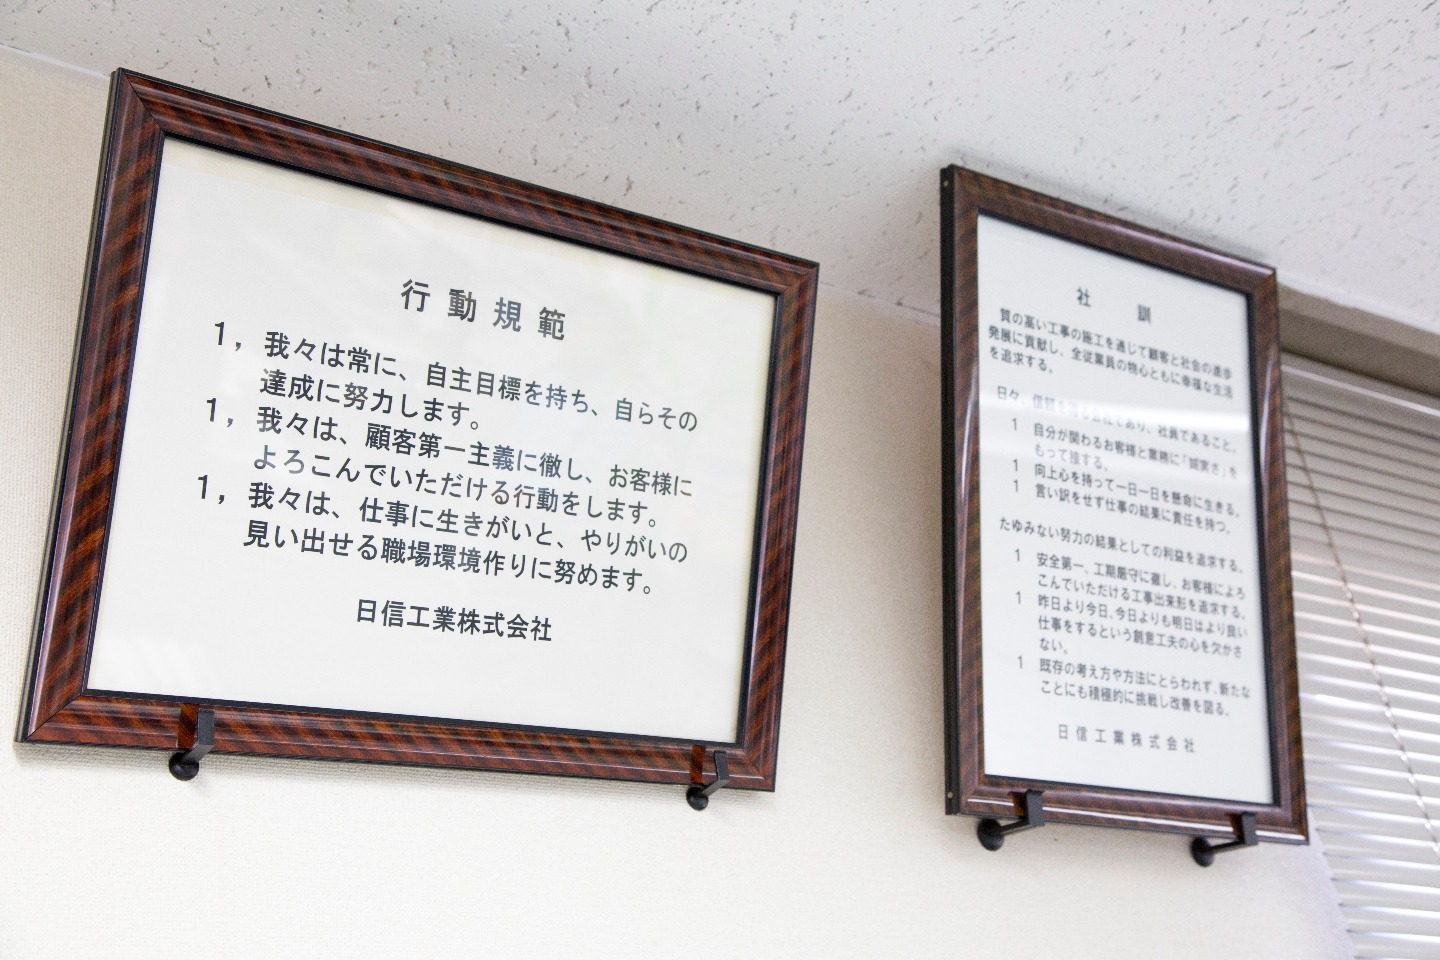 行動規範
1，我々は常に、自主目標を持ち、自らその
達成に努力します。
1，我々は、顧客第一主義に徹し、お客様に
よろこんでいただける行動をします。
1，我々は、仕事に生きがいと、やりがいの
見い出せる職場環境作りに努めます。
日信工業株式会社
社訓
質の高い工事の施工を通じて顧客と社会の進歩
発展に貢献し、全従業員の物心ともに幸福な生活
を追求する。
日々、信頼される会社であり、社員であること。
1 自分が関わるお客様と業務に「誠実さ」を
もって接する。
1 向上心を持って一日一日を懸命に生きる。
1 言い訳をせず仕事の結果に責任を持つ。
たゆみない努力の結果としての利益を追求する。
1 安全第一、工期厳守に徹し、お客様によろ
こんでいただける工事出来形を追求する。
1 昨日より今日、今日よりも明日はより良い
仕事をするという創意工夫の心を欠かさ
ない。
1 既存の考え方や方法にとらわれず、新たな
ことにも積極的に挑戦し改善を図る。
日信工業株式会社